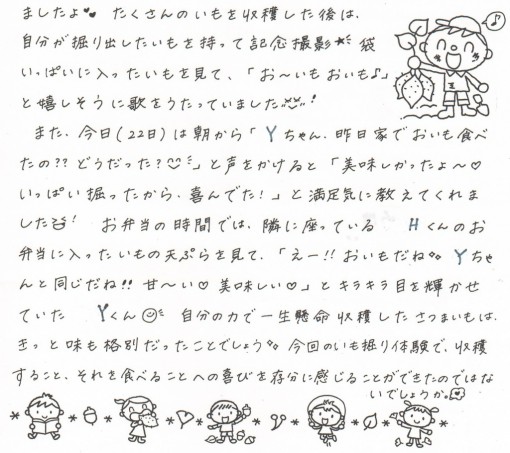 ましたよ♥♥ たくさんのいもを収穫した後は、
自分が掘り出したいもを持って記念撮影★ 袋
いっぱいに入ったいもを見て、「お〜いもおいも♪」
と嬉しそうに歌をうたっていました!
また、今日(22日)は朝から「Yちゃん、昨日家でおいも食べ
たの?? どうだった?」と声をかけると「美味しかったよ〜♡
いっぱい掘ったから、喜んでた!」と満足気に教えてくれま
した! お弁当の時間では、隣に座っている Hくんのお
弁当に入ったいもの天ぷらを見て、「えー!! おいもだね Yちゃ
んと同じだね!! 甘〜い♡ 美味しい♡」とキラキラ目を輝かせ
ていた Yくん 自分の力で一生懸命収穫したさつまいもは、
きっと味も格別だったことでしょう 今回のいも掘り体験で、収穫
すること、それを食べることへの喜びを存分に感じることができたのではな
いでしょうか。